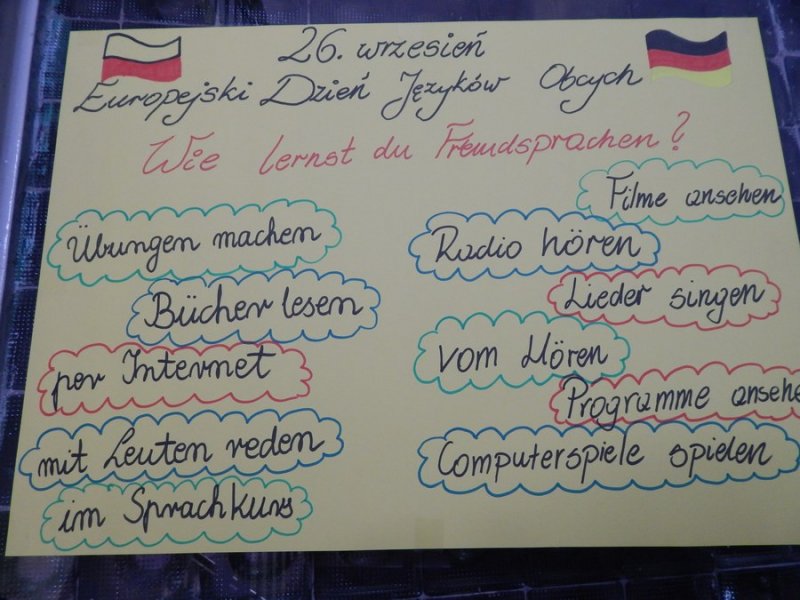 26. wrzesień
Europejski Dzień Języków Obcych
Wie lernst du Fremdsprachen?
Übungen machen
Bücher lesen
per Internet
mit Leuten reden
im Sprachkurs
Filme ansehen
Radio hören
Lieder singen
vom Hören
Programme ansehe
Computerspiele spielen